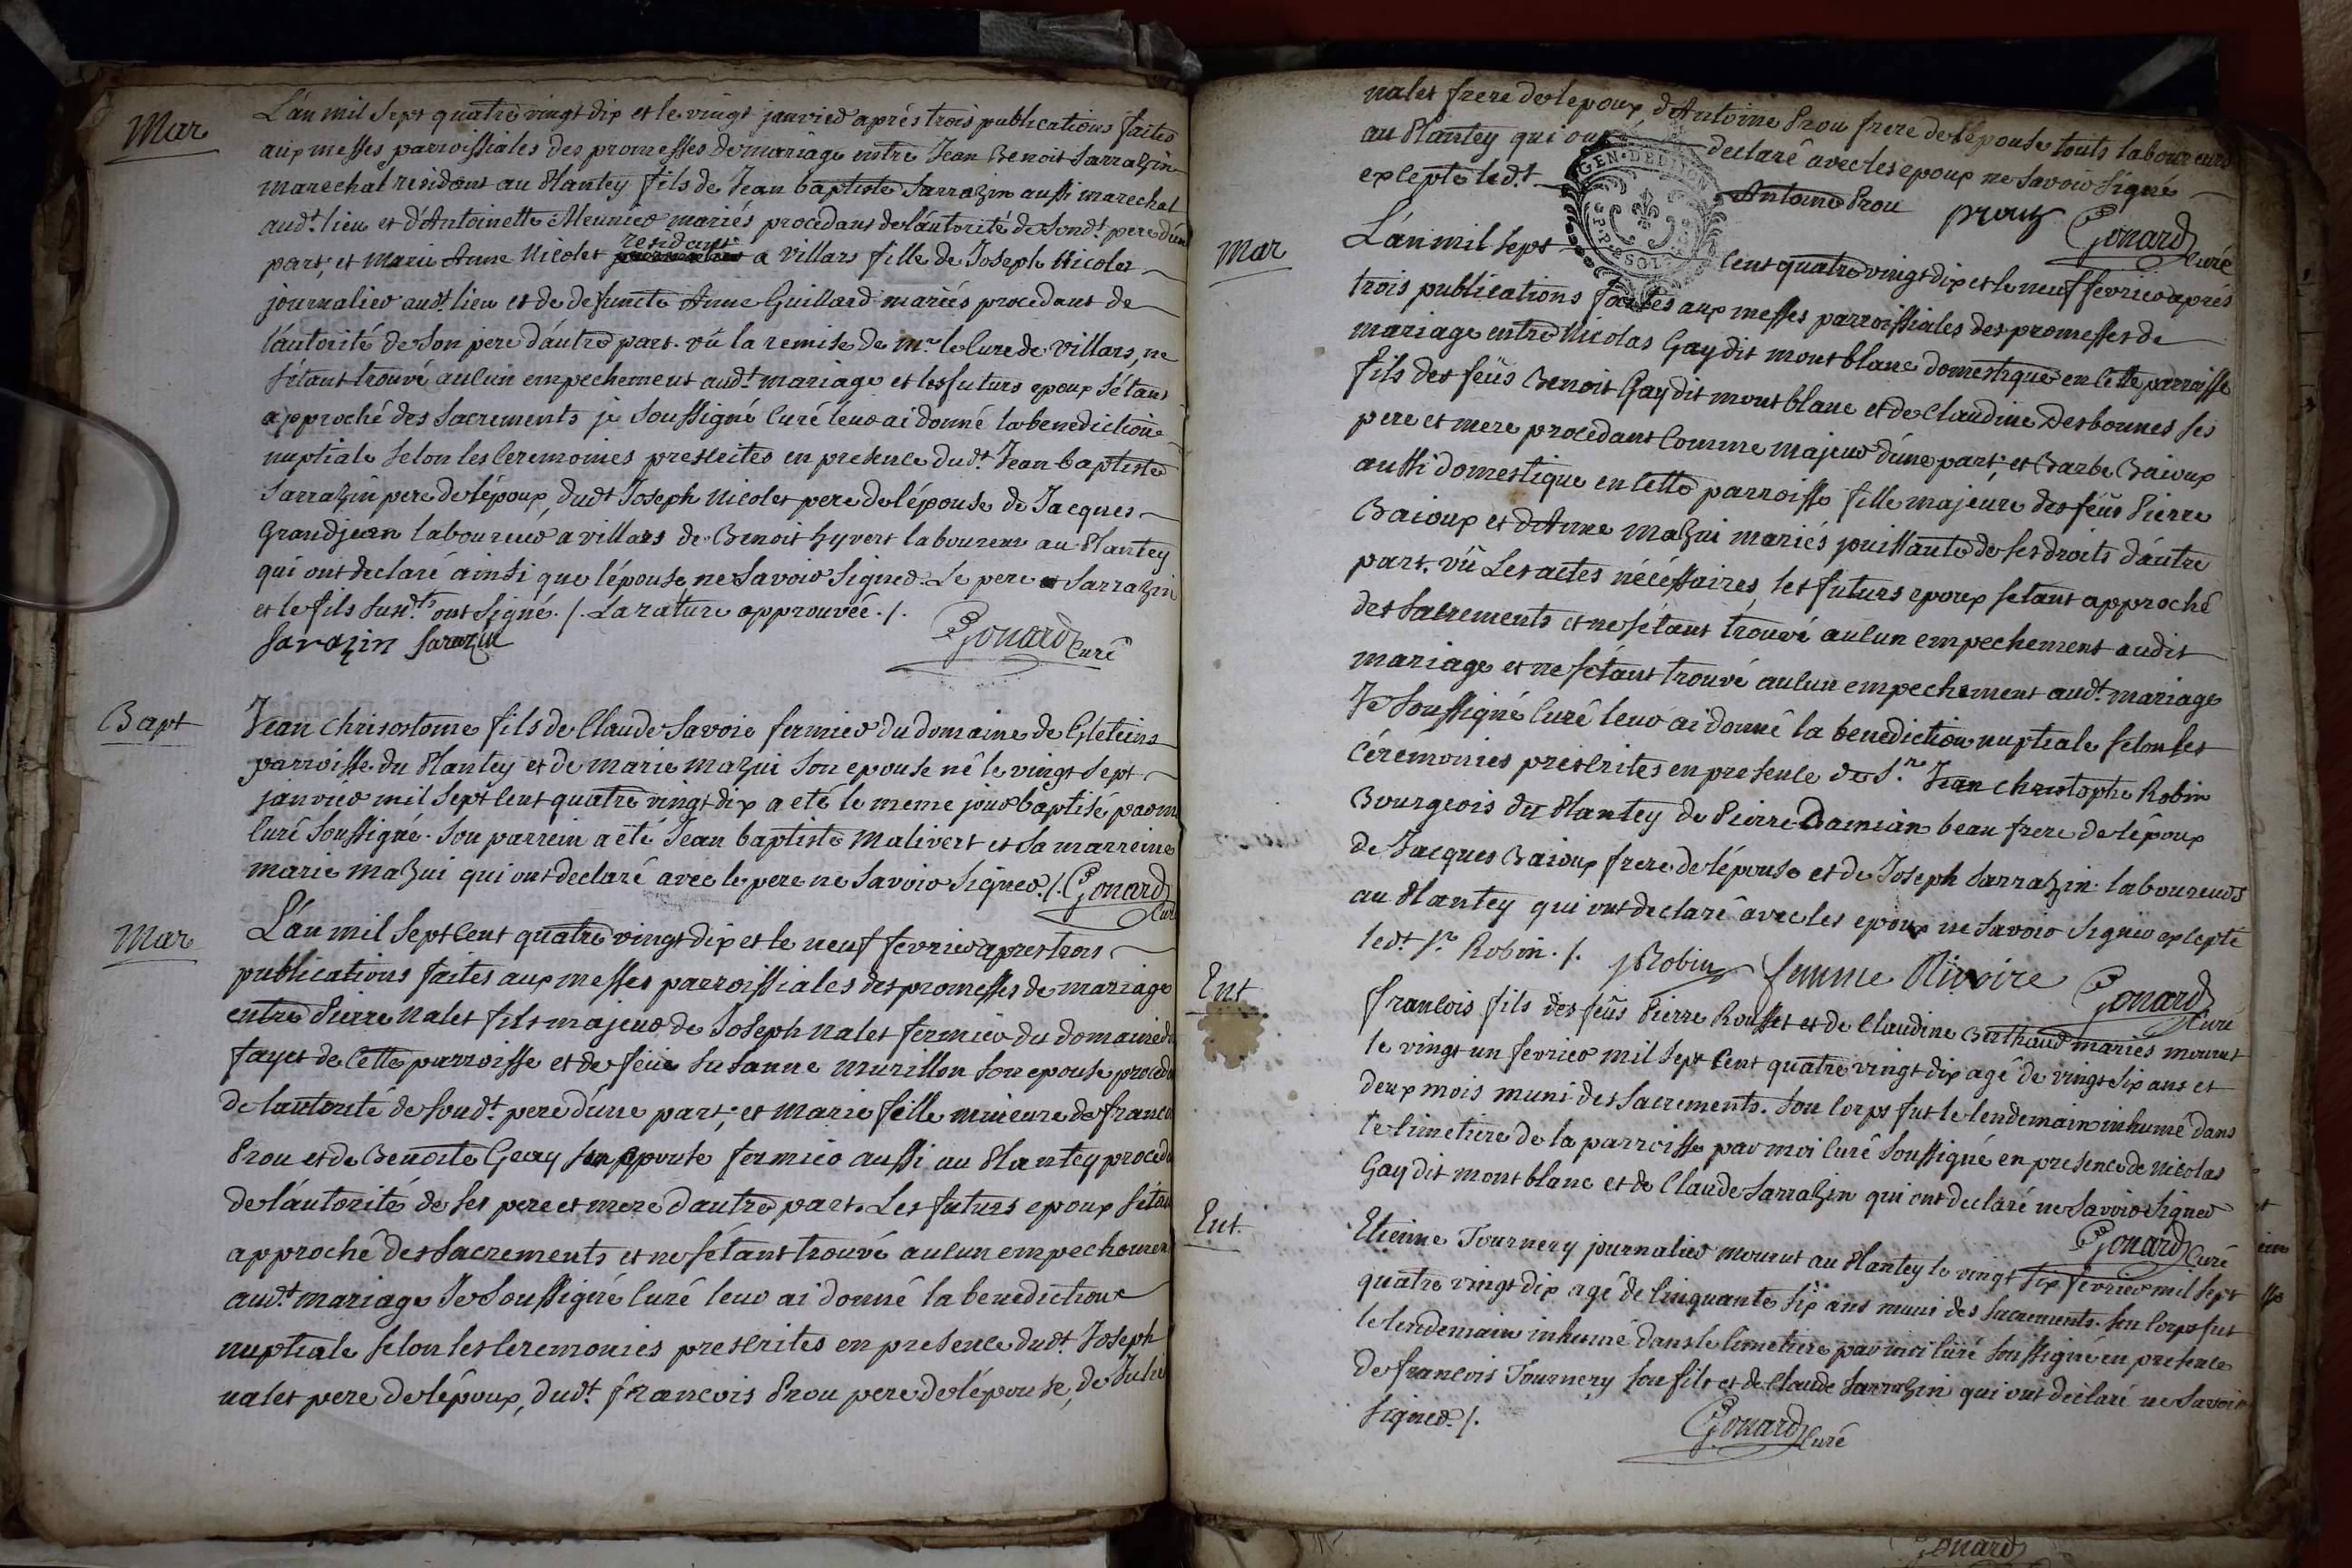 Mar
L'an mil sept quatre vingt dix et le vingt janvier après trois publications faites
aux messes parroissiales des promesses de mariage entre Jean Benoit Sarrazin
marechal residant au Plantey fils de Jean baptiste Sarrazin aussi marechal
aud.t lieu et d'Antoinette Meunier mariés procedant de l'autorité de sond.t pere d'une
part; et Marie Anne Nicolet residante a villars fille de Joseph Nicolet
journalier aud.t lieu et de defuncte Anne Guillard mariés procedant de
l'autorité de son pere d'autre part. vû la remise de mr. le Curé de villars, ne
s'étant trouvé aucun empechement aud.t mariage et les futurs epoux s'étant
approché des Sacrements je soussigné Curé leur ai donné la benediction
nuptiale selon les Ceremonies prescrites en presence dud.t Jean baptiste
Sarrazin pere de l'époux, dud.t Joseph Nicolet pere de l'épouse de Jacques
Grandjean laboureur a villars de Benoit hyvert laboureur au Plantey
qui ont declaré ainsi que l'épouse ne savoir signer. Le pere Sarrazin
et le fils susd.ts ont signé. /. La rature approuvée. /.
Sarazin Sarazin Gonard Curé
Bapt
Jean Chrisostome fils de Claude Savoie fermier du domaine de Gleteins
parroisse du Plantey et de marie mazui son epouse né le vingt sept
janvier mil sept cent quatre vingt dix a eté le meme jour baptisé par m
Curé soussigné. Son parrein a eté Jean baptiste Malivert et sa marreine
marie mazui qui ont declaré avec le pere ne savoir signer. /. Gonard
Curé
Mar
L'an mil sept cent quatre vingt dix et le neuf fevrier apres trois
publications faites aux messes parroissiales des promesses de mariage
entre Pierre nalet fils majeur de Joseph nalet fermier du domaine du
fayet de cette parroisse et de feüe Susanne murillon son epouse proced
de l'autorité de sond.t pere d'une part; et marie fille mineure de franco
Prou et de Benoite Geay son epouse fermier aussi au Plantey proced
de l'autorité de ses pere et mere d'autre part. Les futurs epoux s'etan
approché des Sacrements et ne s'étant trouvé aucun empechemen
aud.t mariage Je soussigné Curé leur ai donné la benediction
nuptiale selon les Ceremonies prescrites en presence dud.t Joseph
nalet pere de l'époux, dud.t francois Prou pere de l'épouse, de Juli
nalet frere de lepoux, d'Antoine Prou frere de l'épouse touts laboureurs
au Plantey qui ont declaré avec les epoux ne savoir signé
excepté led.t Antoine Prou prouz Gonard
Curé
GEN. DE DIJON
Mar
L'an mil sept cent quatre vingt dix et le neuf fevrier après
trois publications faites aux messes parroissiales des promesses de
mariage entre Nicolas Gay dit mont blanc domestique en cette parroisse
fils des feüs Benoit Gay dit mont blanc et de Claudine Desbonnes ses
pere et mere procedant comme majeur d'une part; et Barbe Baioux
aussi domestique en cette parroisse fille majeure des feüs Pierre
Baioux et d'Anne mazui mariés jouissante de ses droits d'autre
part. vû Les actes nécéssaires, les futurs epoux s'etant approché
des Sacrements et ne s'étant trouvé aucun empechement audit
mariage et ne s'étant trouvé aucun empechement aud.t mariage
Je soussigné Curé leur ai donné la benediction nuptiale selon les
Cérémonies prescrites en presence de S.r Jean Christophe Robin
Bourgeois du Plantey de Pierre Damian beau frere de l'époux
de Jacques Baioux frere de l'épouse et de Joseph Sarrazin laboureurs
au Plantey qui ont declaré avec les epoux ne savoir signer excepté
led.t S.r Robin. /. JRobin femme Rivoire Gonard
Curé
Ent
francois fils des feüs Pierre Rousset et de Claudine Berthaud mariés mourut
le vingt un fevrier mil sept cent quatre vingt dix agé de vingt six ans et
deux mois muni des Sacrements. Son corps fut le lendemain inhumé dans
le Cimetiere de la parroisse par moi Curé soussigné en presence de Nicolas
Gay dit mont blanc et de Claude Sarrazin qui ont declaré ne savoir signer
Gonard Curé
Ent.
Etienne Tournery journalier mourut au Plantey le vingt six fevrier mil sept
quatre vingt dix agé de Cinquante six ans muni des Sacrements. Son Corps fut
le lendemain inhumé dans le Cimetiere par moi Curé soussigné en presence
de francois Tournery son fils et de Claude Sarrazin qui ont declaré ne savoir
signer. /. Gonard Curé
Gonard